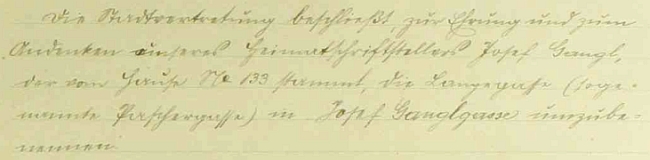 Die Stadtvertretung beschließt zur Ehrung und zum
Andenken unseres Heimatschriftstellers Josef Gangl,
der vom Hause No 133 stammt, die Langegasse (soge-
nannte Paschergasse) in Josef Ganglgasse umzube-
nennen